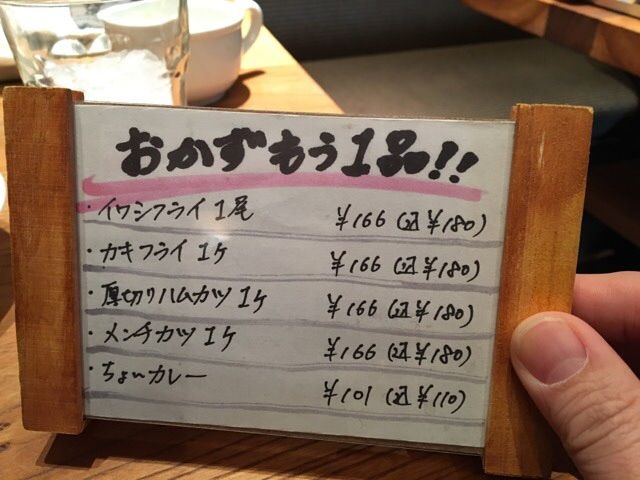 おかずもう1品!!
・イワシフライ 1尾 ¥166 (込¥180)
・カキフライ 1ケ ¥166 (込¥180)
・厚切りハムカツ 1ケ ¥166 (込¥180)
・メンチカツ 1ケ ¥166 (込¥180)
・ちょいカレー ¥101 (込¥110)